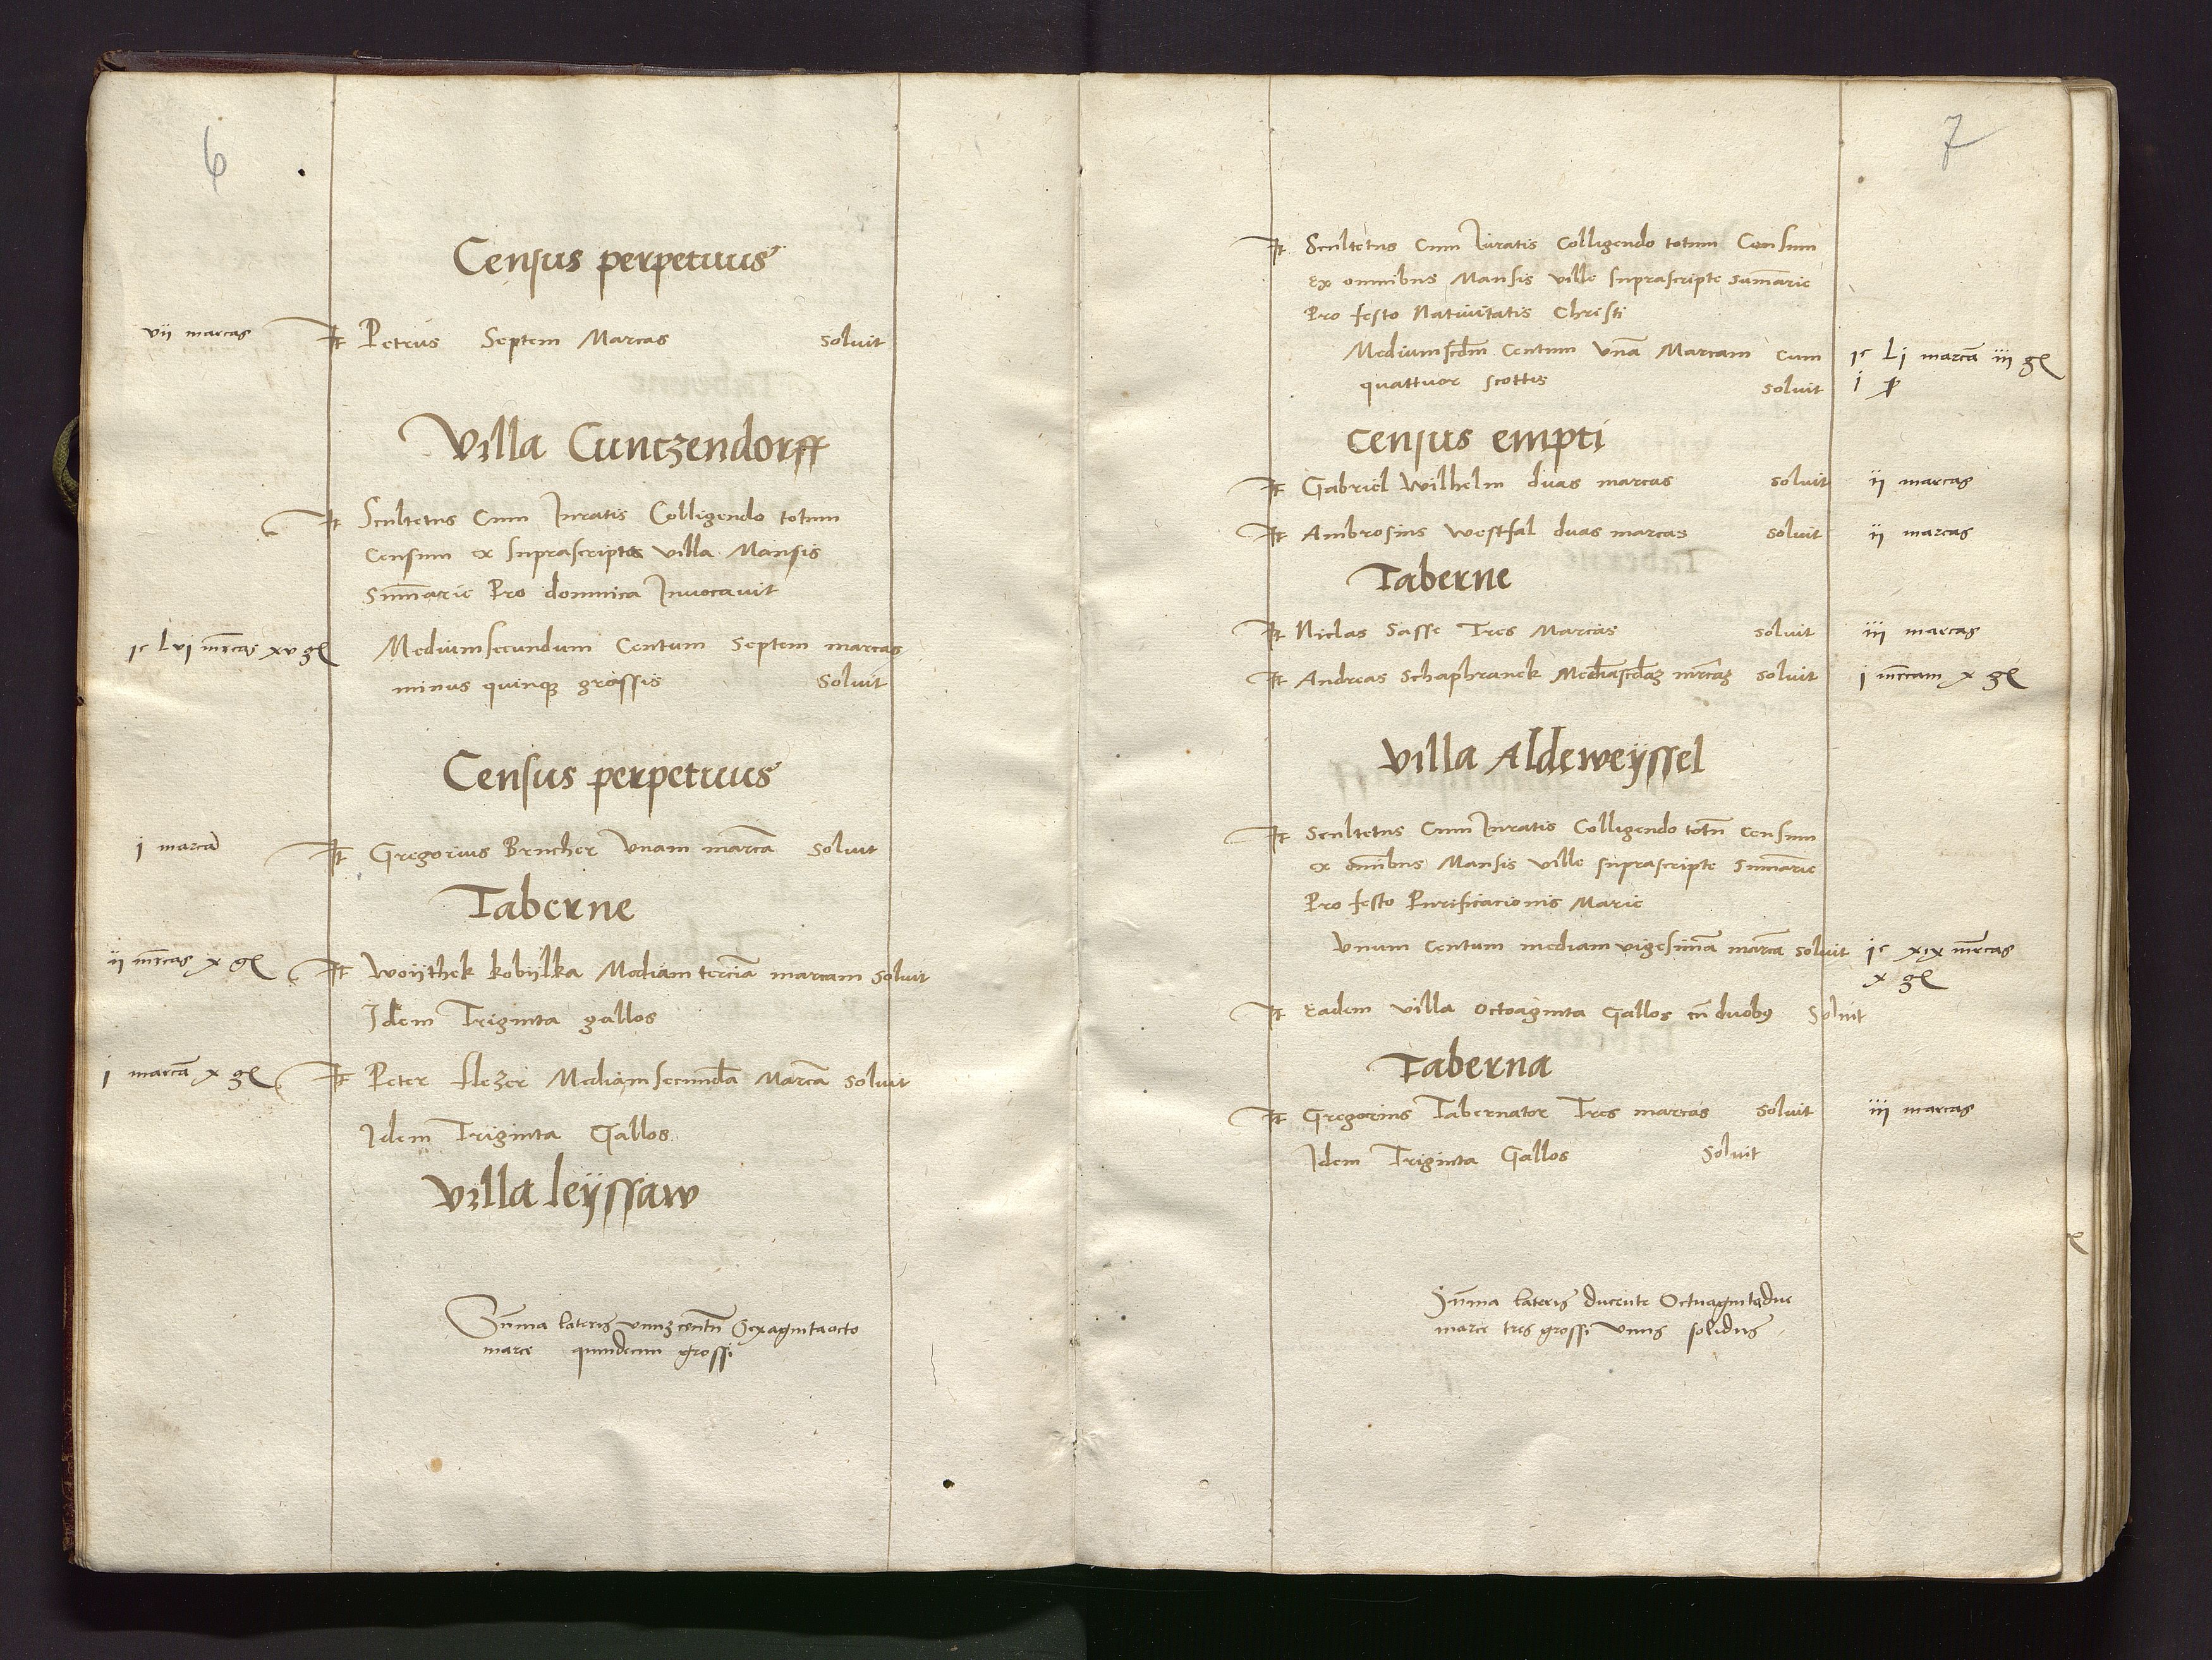 6
Census perpetuus
vii marcas It Petrus Septem Marcas soluit
Villa Cuntzendorff
It Scultetus Cum Iuratis Colligendo totum
Censum ex suprascripta villa Mansis
Sum̄arie Pro dominica Inuocauit
ic Lvi mrcas xv gl Mediumsecundum Centum Septem marcas
minus quinq3 grossis Soluit
Census perpetuus
i marcā It Gregorius Brucher Vnam marcā Soluit
Taberne
ii mrcas x gl It Woijthek kobijlka Mediam terciā marcam Soluit
Idem Triginta gallos
i marcā x gl It Peter flezer Mediam secundā Marcā soluit
Idem Triginta Gallos
Villa leijssaw
Sum̄a lateris vnu3 centū Sexagintaocto
marce quindecim grossi
7
It Scultetus Cum Iuratis Colligendo totum Censum
ex omnibus Mansis ville suprascripte sum̄arie
Pro festo Natiuitatis Christi
Mediumscdm Centum Vnā Marcam cum ic Li marcā iii gl
quattuor scottis soluit i
census empti
It Gabriel Wilhelm duas marcas soluit ii marcas
It Ambrosius Westfal duas marcas soluit ii marcas
Taberne
It Niclas Sasse Tres Marcas soluit iii marcas
It Andreas Schaphranek Mediāscdā3 mrcā3 soluit i mrcam x gl
Villa Aldeweijssel
It Scultetus Cum Iuratis Colligendo totū censum
ex om̄ibus Mansis ville suprascripte Sum̄arie
Pro festo Purificacionis Marie
Vnum Centum mediam vigesimā marcā soluit ic xix mrcas
x gl
It Eadem villa octoaginta Gallos cū duob9 Soluit
Taberna
It Gregorius Tabernator Tres marcas soluit iii marcas
Idem Triginta Gallos Soluit
Sum̄a lateris ducente Octuagintadue
marce tres grossi Vnus solidus